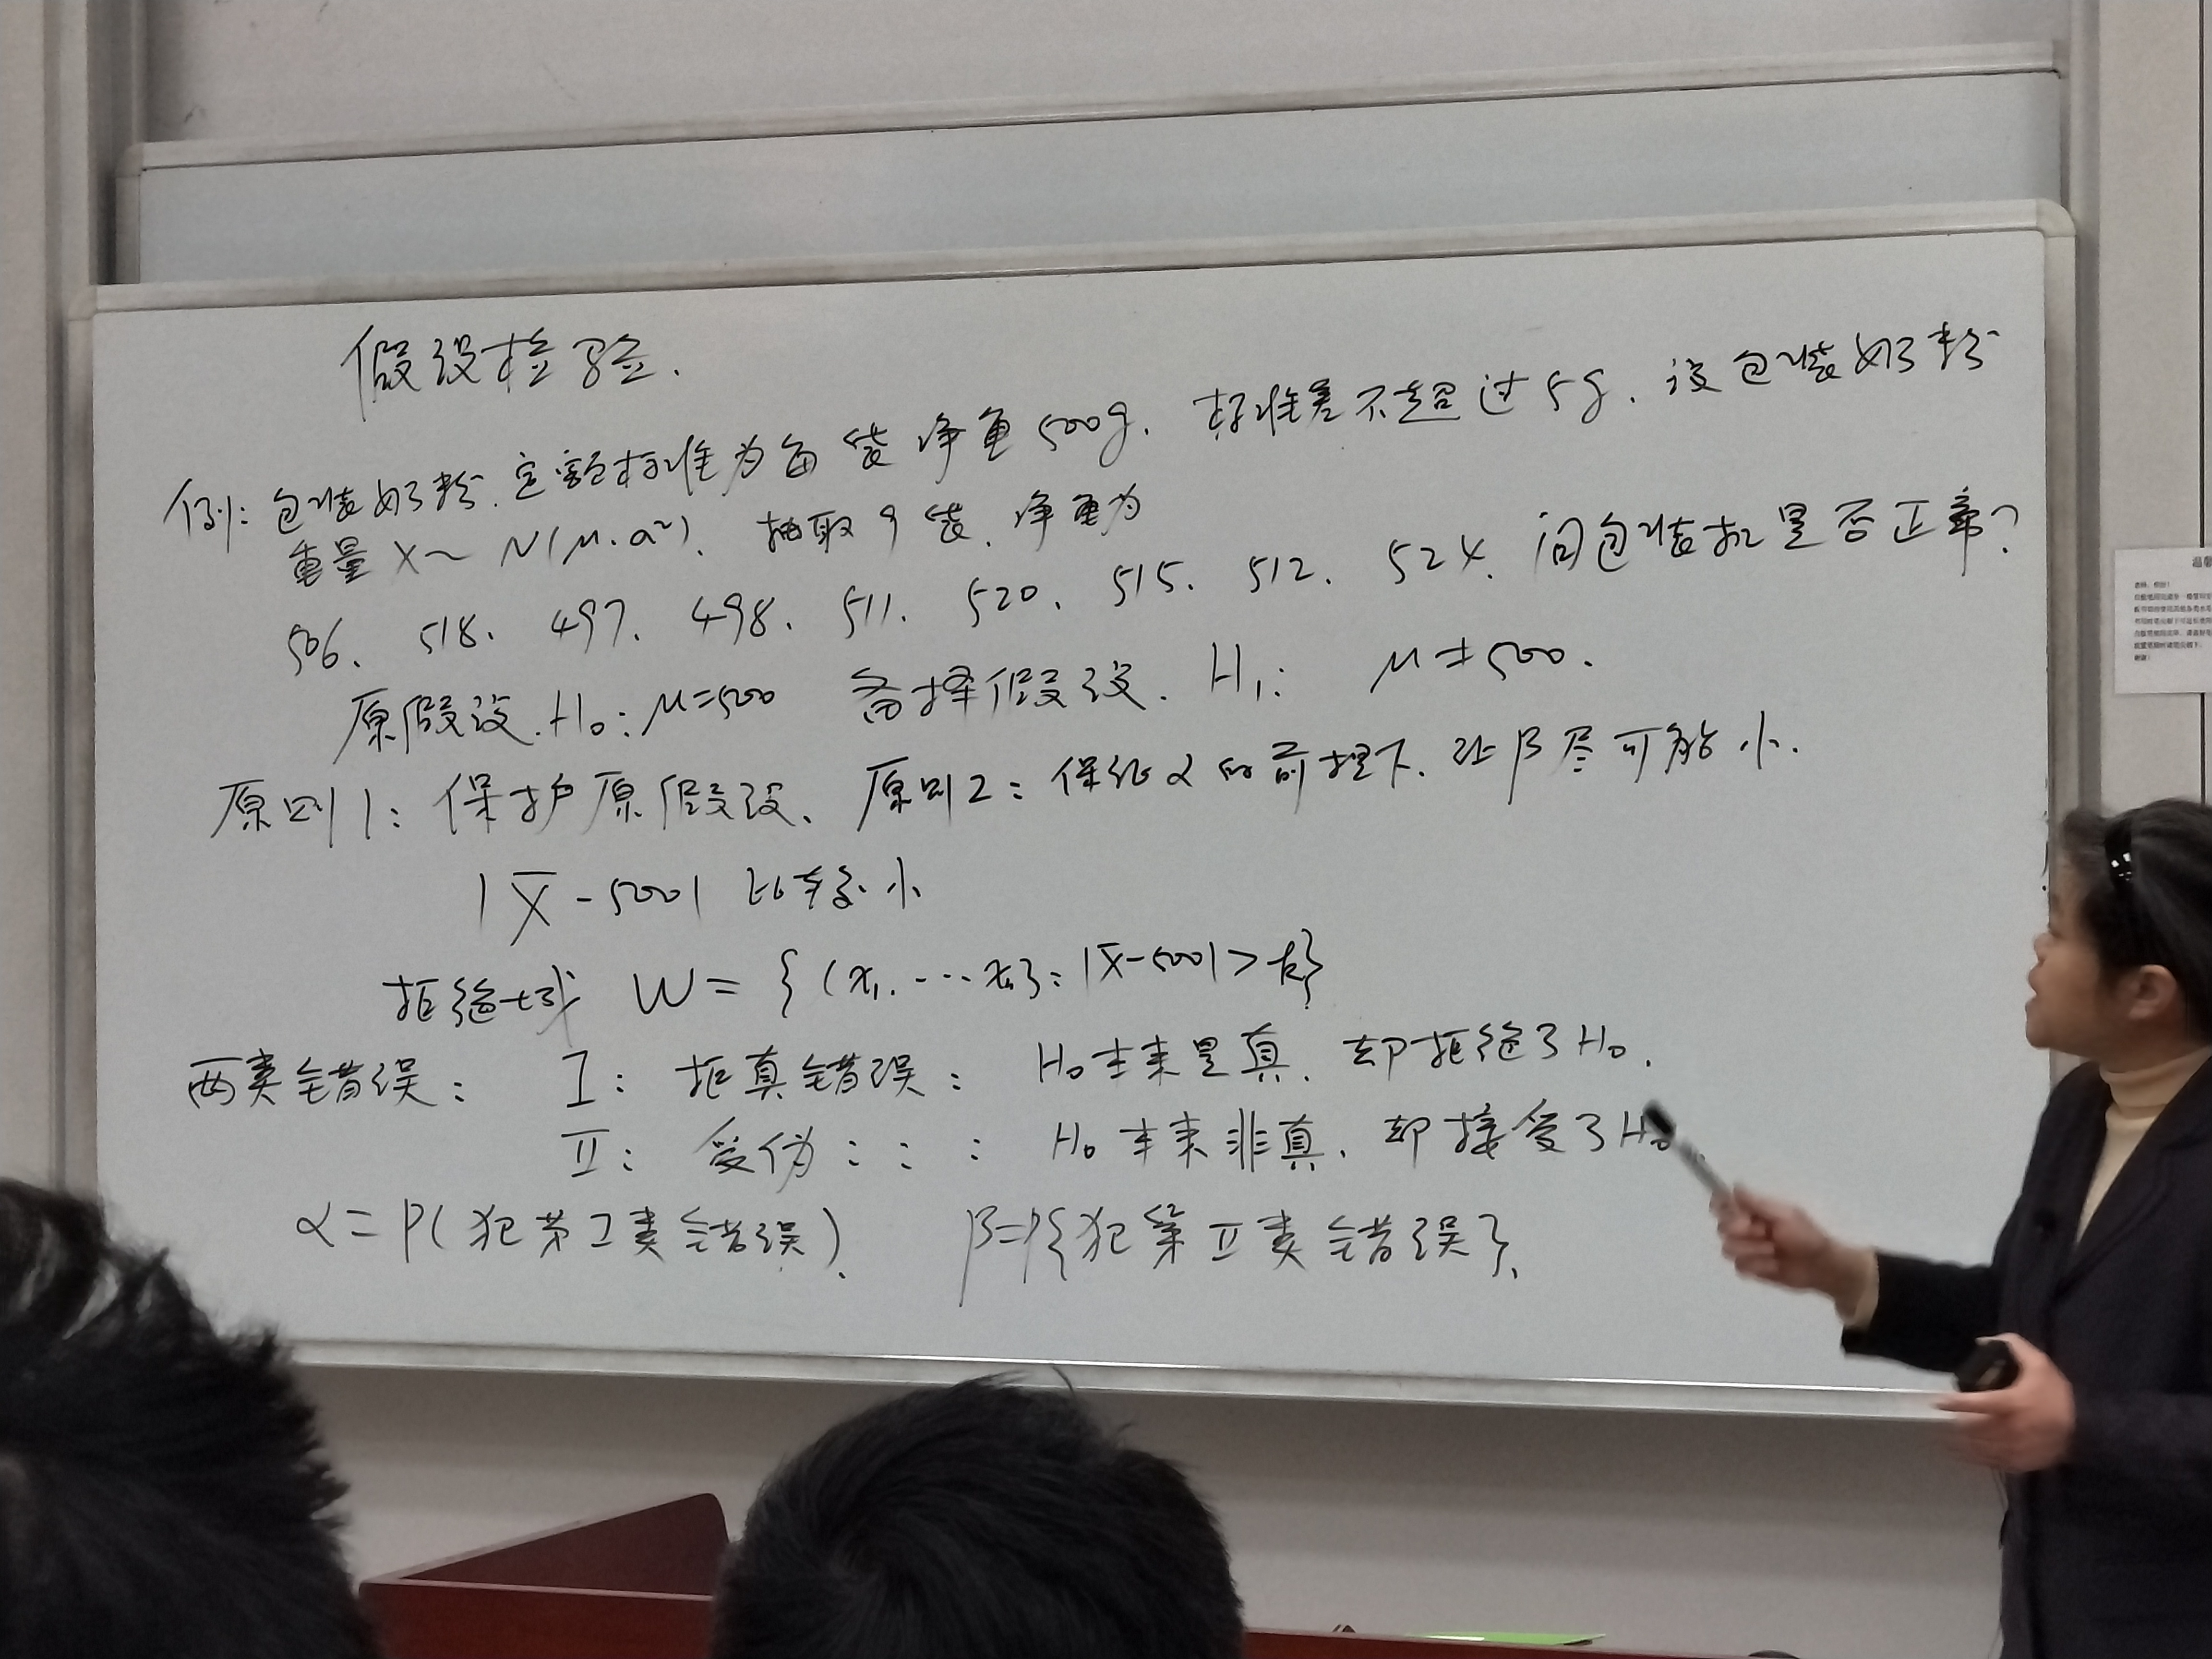 假设检验.
例: 包装奶粉. 定额标准为每袋净重500g. 标准差不超过5g. 设包装奶粉
重量 X~N(μ.σ²). 抽取9袋. 净重为
506. 518. 497. 498. 511. 520. 515. 512. 524. 问包装机是否正常?
原假设. H₀: μ=500 备择假设. H₁: μ≠500.
原则1: 保护原假设. 原则2: 保证α的前提下. 让β尽可能小.
|X̄-500| 比较小
拒绝域 W={(x₁.…xₙ): |X̄-500|>k}
两类错误: I: 拒真错误: H₀本来是真. 却拒绝了H₀.
II: 受伪: : : H₀本来非真. 却接受了H₀.
α=P(犯第I类错误). β=P{犯第II类错误}.